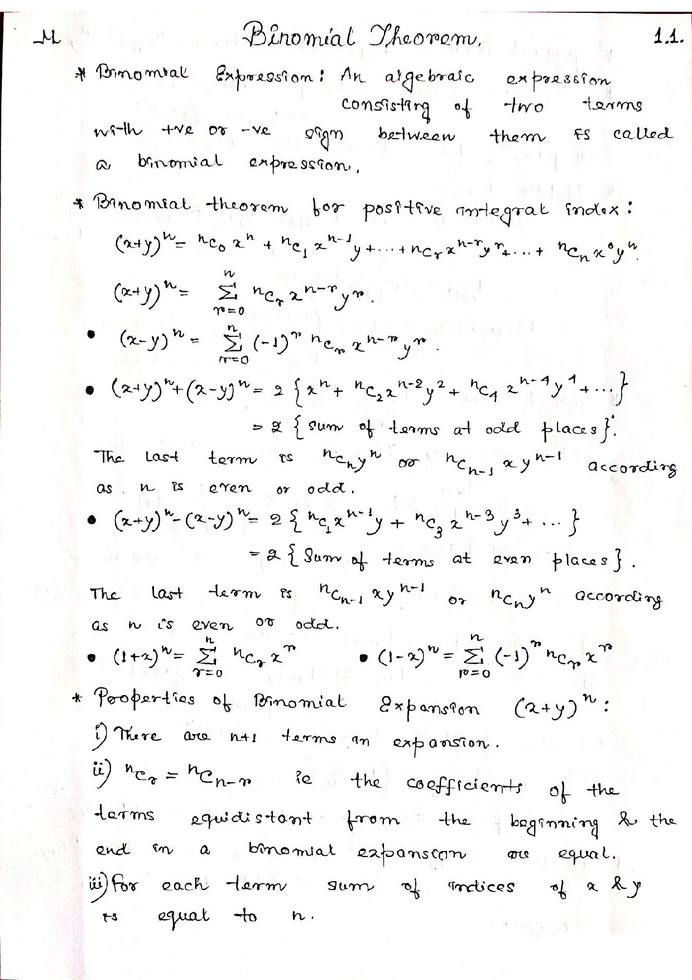 M Binomial Theorem. 1.1.
* Binomial Expression: An algebraic expression
consisting of two terms
with +ve or -ve sign between them is called
a binomial expression.
* Binomial theorem for positive integral index:
(x+y)ⁿ = ⁿC₀ xⁿ + ⁿC₁ xⁿ⁻¹y + ... + ⁿCᵣ xⁿ⁻ʳyʳ + ... + ⁿCₙ x⁰yⁿ
(x+y)ⁿ = Σ_{r=0}^{n} ⁿCᵣ xⁿ⁻ʳyʳ.
• (x-y)ⁿ = Σ_{r=0}^{n} (-1)ʳ ⁿCᵣ xⁿ⁻ʳyʳ.
• (x+y)ⁿ+(x-y)ⁿ = 2 { xⁿ + ⁿC₂xⁿ⁻²y² + ⁿC₄ xⁿ⁻⁴y⁴ + ... }
= 2 { sum of terms at odd places}.
The last term is ⁿCₙyⁿ or ⁿCₙ₋₁ xyⁿ⁻¹ according
as n is even or odd.
• (x+y)ⁿ-(x-y)ⁿ = 2 { ⁿC₁xⁿ⁻¹y + ⁿC₃ xⁿ⁻³y³ + ... }
= 2 { Sum of terms at even places}.
The last term is ⁿCₙ₋₁ xyⁿ⁻¹ or ⁿCₙyⁿ according
as n is even or odd.
• (1+x)ⁿ = Σ_{r=0}^{n} ⁿCᵣ xʳ • (1-x)ⁿ = Σ_{r=0}^{n} (-1)ʳ ⁿCᵣ xʳ
* Properties of Binomial Expansion (x+y)ⁿ:
i) There are n+1 terms in expansion.
ii) ⁿCᵣ = ⁿCₙ₋ᵣ ie the coefficients of the
terms equidistant from the beginning & the
end in a binomial expansion are equal.
iii) for each term sum of indices of x & y
is equal to n.